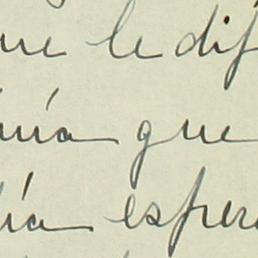 ue le dif
nía que
ía esper